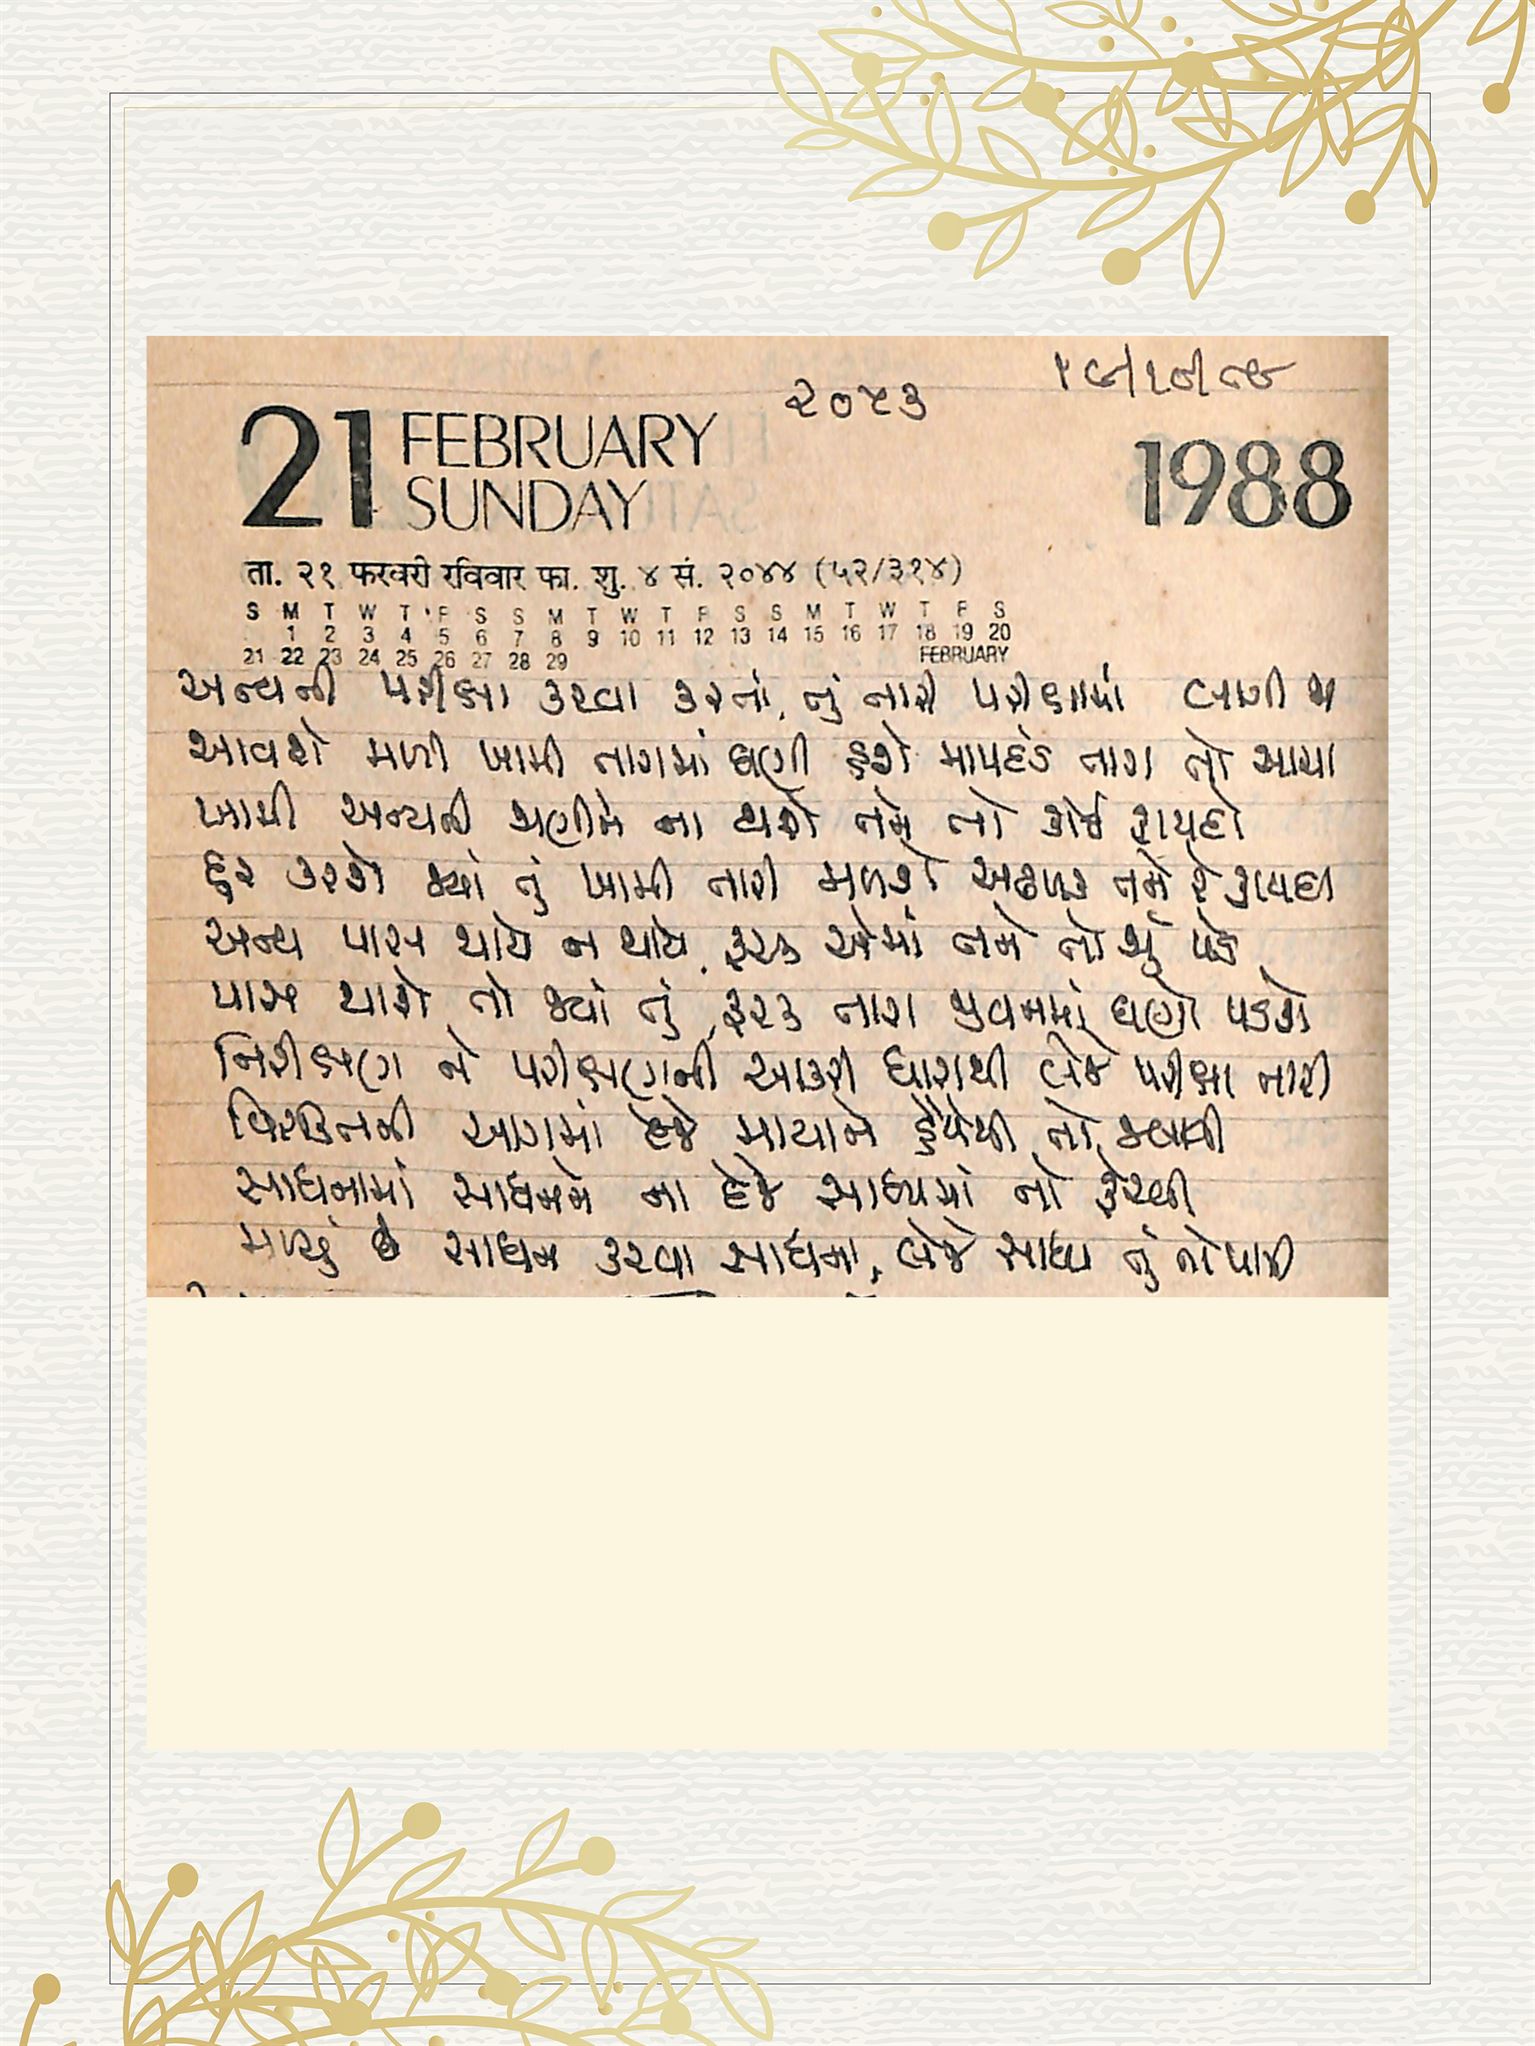 ૨૦૫૩
21 FEBRUARY
SUNDAY
1988
ता. २१ फरवरी रविवार फा. शु. ४ सं. २०४४ (५२/३१४)
S M T W T F S S M T W T F S S M T W T F S
1 2 3 4 5 6 7 8 9 10 11 12 13 14 15 16 17 18 19 20
21 22 23 24 25 26 27 28 29 FEBRUARY
અન્યની પરીક્ષા કરવા કરતાં, તું તારી પરીક્ષામાં લાગી જા
આવશે મળી ખામી તારામાં ઘણી હશે માપદંડ તારા તો સાચા
ખામી અન્યની જાણીને ના થાશે તને તો કોઈ ફાયદો
દૂર કરશે જ્યાં તું ખામી તારી મળશે અઢળક તને રે ફાયદા
અન્ય પાસ થાયે ન થાયે, ફરક એમાં તને તો શું પડે
પાસ થાશે તો જ્યાં તું, ફરક તારા જીવનમાં ઘણો પડશે
નિરીક્ષણ ને પરીક્ષણની આકરી ધારાથી લેજે પરીક્ષા તારી
વિરક્તિની આગમાં દેજે માયાને હૈયેથી તો જલાવી
સાધનામાં સાધનને ના દેજે સાધ્યમાં તો ફેરવી
મળ્યું છે સાધન કરવા સાધના, લેજે સાધ્ય તું તો પામી